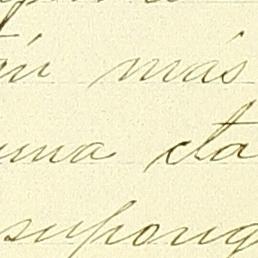 ún más
una cta
supong